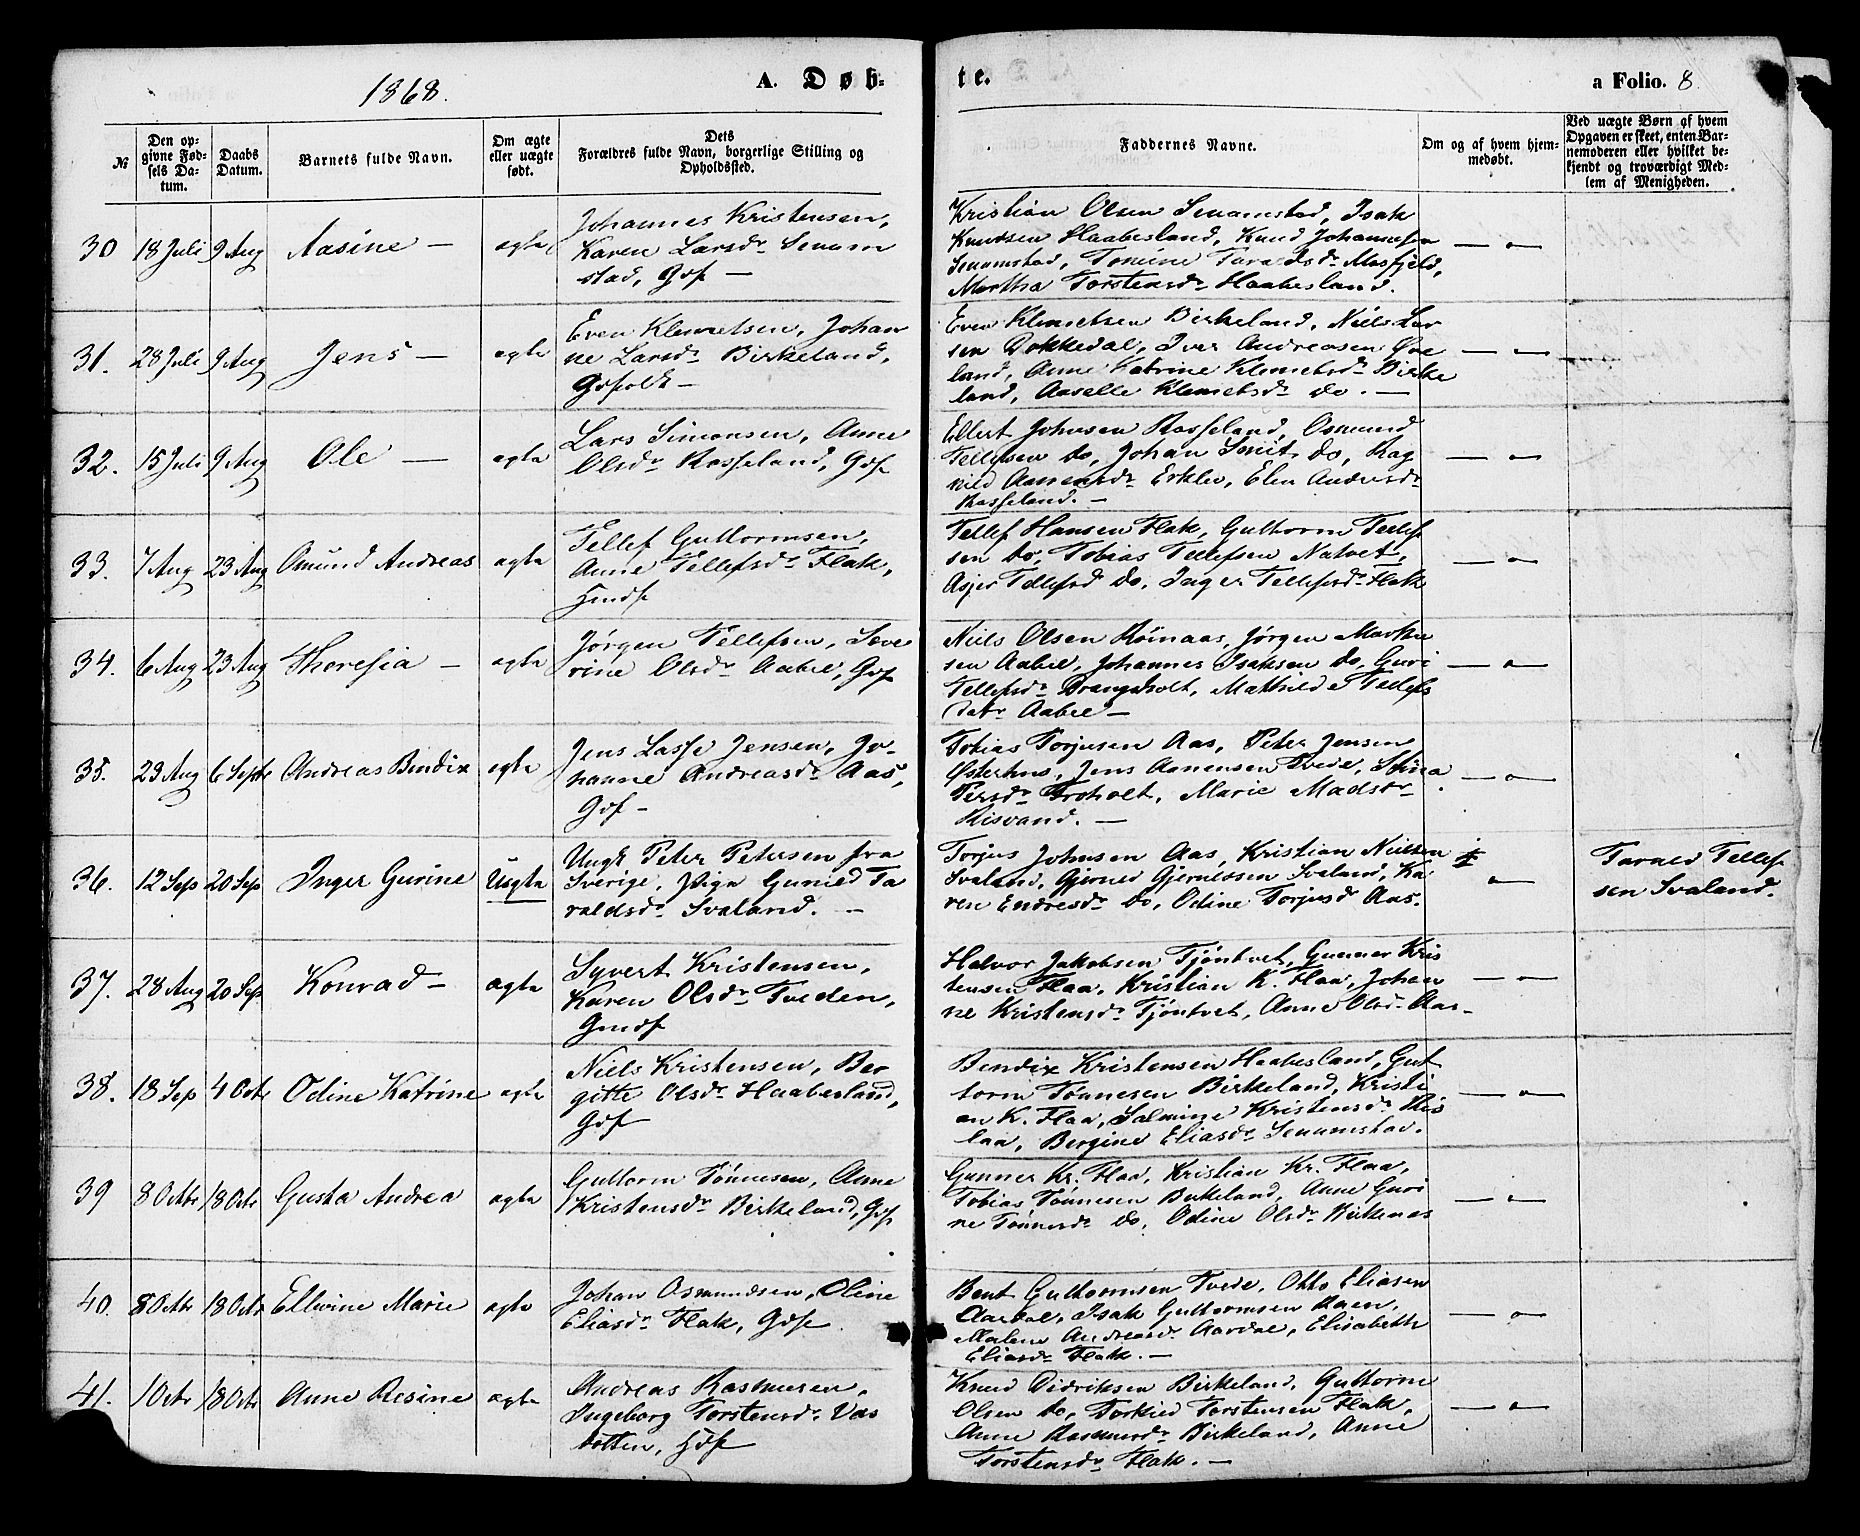 1868. A. Døb-
te. a Folio. 8.
№
Den op-
givne Fød-
sels Da-
tum.
Daabs
Datum.
Barnets fulde Navn.
Om ægte
eller uægte
født.
Dets
Forældres fulde Navn, borgerlige Stilling og
Opholdssted.
Faddernes Navne.
Om og af hvem hjem-
medøbt.
Ved uægte Børn af hvem
Opgaven er skeet, enten Bar-
nemoderen eller hvilket be-
kjendt og troværdigt Med-
lem af Menigheden.
30 18 Juli 9 Aug Aasine — ægte
Johannes Kristensen,
Karen Larsdr Senum
stad, Gdf —
Kristian Olsen Senumstad, Isak
Knudsen Haabesland, Knud Johannesen
Senumstad, Tomine Taraldsdr Mosfjeld,
Martha Torstensdr Haabesland.
— " —
31. 28 Juli 9 Aug Jens — ægte
Even Klemetsen, Johan
ne Larsdr Birkeland,
Gdfolk —
Even Klemetsen Birkeland, Niels Lar
sen Dokkedal, Iver Andreasen Øve
land, Anne Katrine Klemetsdr Birke
land, Aaselle Klemetsdr do. —
— " —
32. 15 Juli 9 Aug Ole — ægte
Lars Simonsen, Anne
Olsdr Rosseland, Gdf
Ellert Johnsen Rosseland, Osmund
Tellefsen do, Johan Smit do, Rag
nild Aanensdr Erklev, Elen Andersdr
Rosseland. —
— " —
33. 7 Aug 23 Aug Omund Andreas ægte
Tellef Guttormsen,
Anne Tellefsdr Flak,
Hmdf
Tellef Hansen Flak, Guttorm Tellef
sen do, Tobias Tellefsen Natvet,
Asjer Tellefsd do, Inger Tellefsdr Flak
— " —
34. 6 Aug 23 Aug Theresia — ægte
Jørgen Tellefsen, Seve
rine Olsdr Aabel, Gdf
Niels Olsen Röinaas, Jørgen Marku
sen Aabel, Johannes Isaksen do, Guri
Tellefsdr Drangsholt, Mathilde Tellefs
datr Aabel —
— " —
35. 23 Aug 6 Septr Andreas Bendix ægte
Jens Lasse Jensen, Jo-
hanne Andreasdr Aas,
Gdf —
Tobias Torjusen Aas, Peter Jensen
Østerhus, Jens Aanensen Tvede, Stina
Persdr Froholt, Marie Madsdr
Risvand. —
— " —
36. 12 Sep 20 Sep Inger Gurine Uægte
Ungk Peter Petersen fra
Sverige, Pige Gunild Ta
raldsdr Svaland. —
Torjus Johnsen Aas, Kristian Nielsen
Svaland, Gjeruld Gjeruldsen Svaland, Ka
ren Endresdr do, Odine Torjusd Aas.
— " —
Tarald Tellef
sen Svaland.
37. 28 Aug 20 Sep Konrad — ægte
Syvert Kristensen,
Karen Olsdr Tveden,
Gmdf
Halvor Jakobsen Tjöntvet, Gunner Kris
tensen Flaa, Kristian K. Flaa, Johan
ne Kristensdr Tjöntvet, Anne Olsdr Aas —
— " —
38. 18 Sep 4 Octr Odine Katrine ægte
Niels Kristensen, Ber
gitte Olsdr Haabesland,
Gdf
Bendix Kristensen Haabesland, Gut
torm Tönnesen Birkeland, Kristi
an K. Flaa, Salmine Kristensdr Ris
laa, Bergine Eliasdr Senumstad.
— " —
39 8 Octbr 18 Octr Gusta Andrea ægte
Guttorm Tönnesen, Anne
Kristensdr Birkeland, Gdf
Gunner Kr. Flaa, Kristian Kr. Flaa,
Tobias Tönnesen Birkeland, Anne Guri
ne Tönnesdr do, Odine Olsdr Birkenes
— " —
40. 8 Octbr 18 Octr Ellevine Marie ægte
Johan Osmundsen, Oline
Eliasdr Flak, Gdf.
Bent Guttormsen Tvede, Otto Eliasen
Aardal, Isak Guttormsen Raen,
Malene Andreasdr Aardal, Elisabeth
Eliasdr Flak. —
— " —
41. 1 Octr 18 Octr Anne Resine ægte
Andreas Rasmusen,
Ingeborg Torstensdr Vas
botten, Hdf
Knud Didriksen Birkeland, Guttorm
Olsen do, Torkild Torstensen Flak,
Anne Rasmusdr Birkeland, Anne
Torstensdr Flak. —
— " —